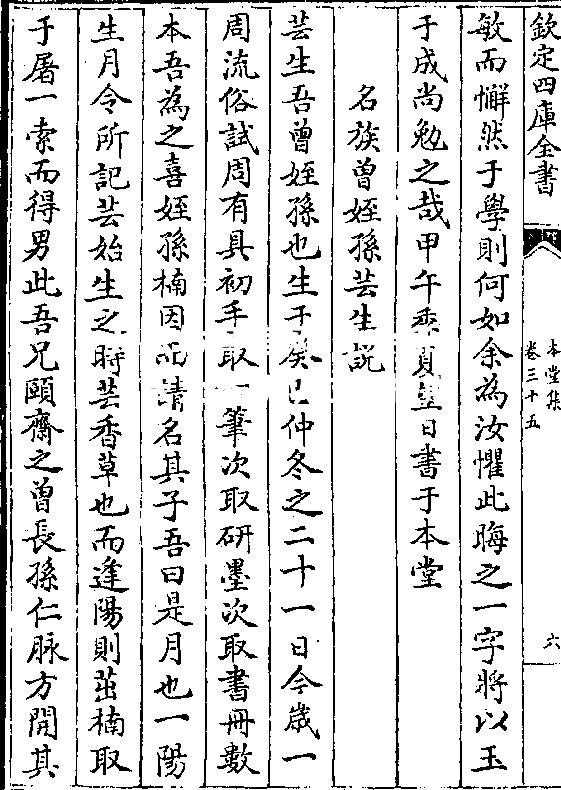 欽定四庫全書
本堂集
卷三十五
六
敏而懈然于學則何如余為汝懼此晦之一字將以玉
于成尚勉之哉甲午季夏望日書于本堂
名族曾姪孫芸生説
芸生吾曾姪孫也生于癸巳仲冬之二十一日今歳一
周流俗試周有具初手取一筆次取研墨次取書冊數
本吾為之喜姪孫楠因請名其子吾曰是月也一陽
生月令所記芸始生之時芸香草也而逢陽則茁楠取
于屠一索而得男此吾兄頤齋之曾長孫仁脉方開其